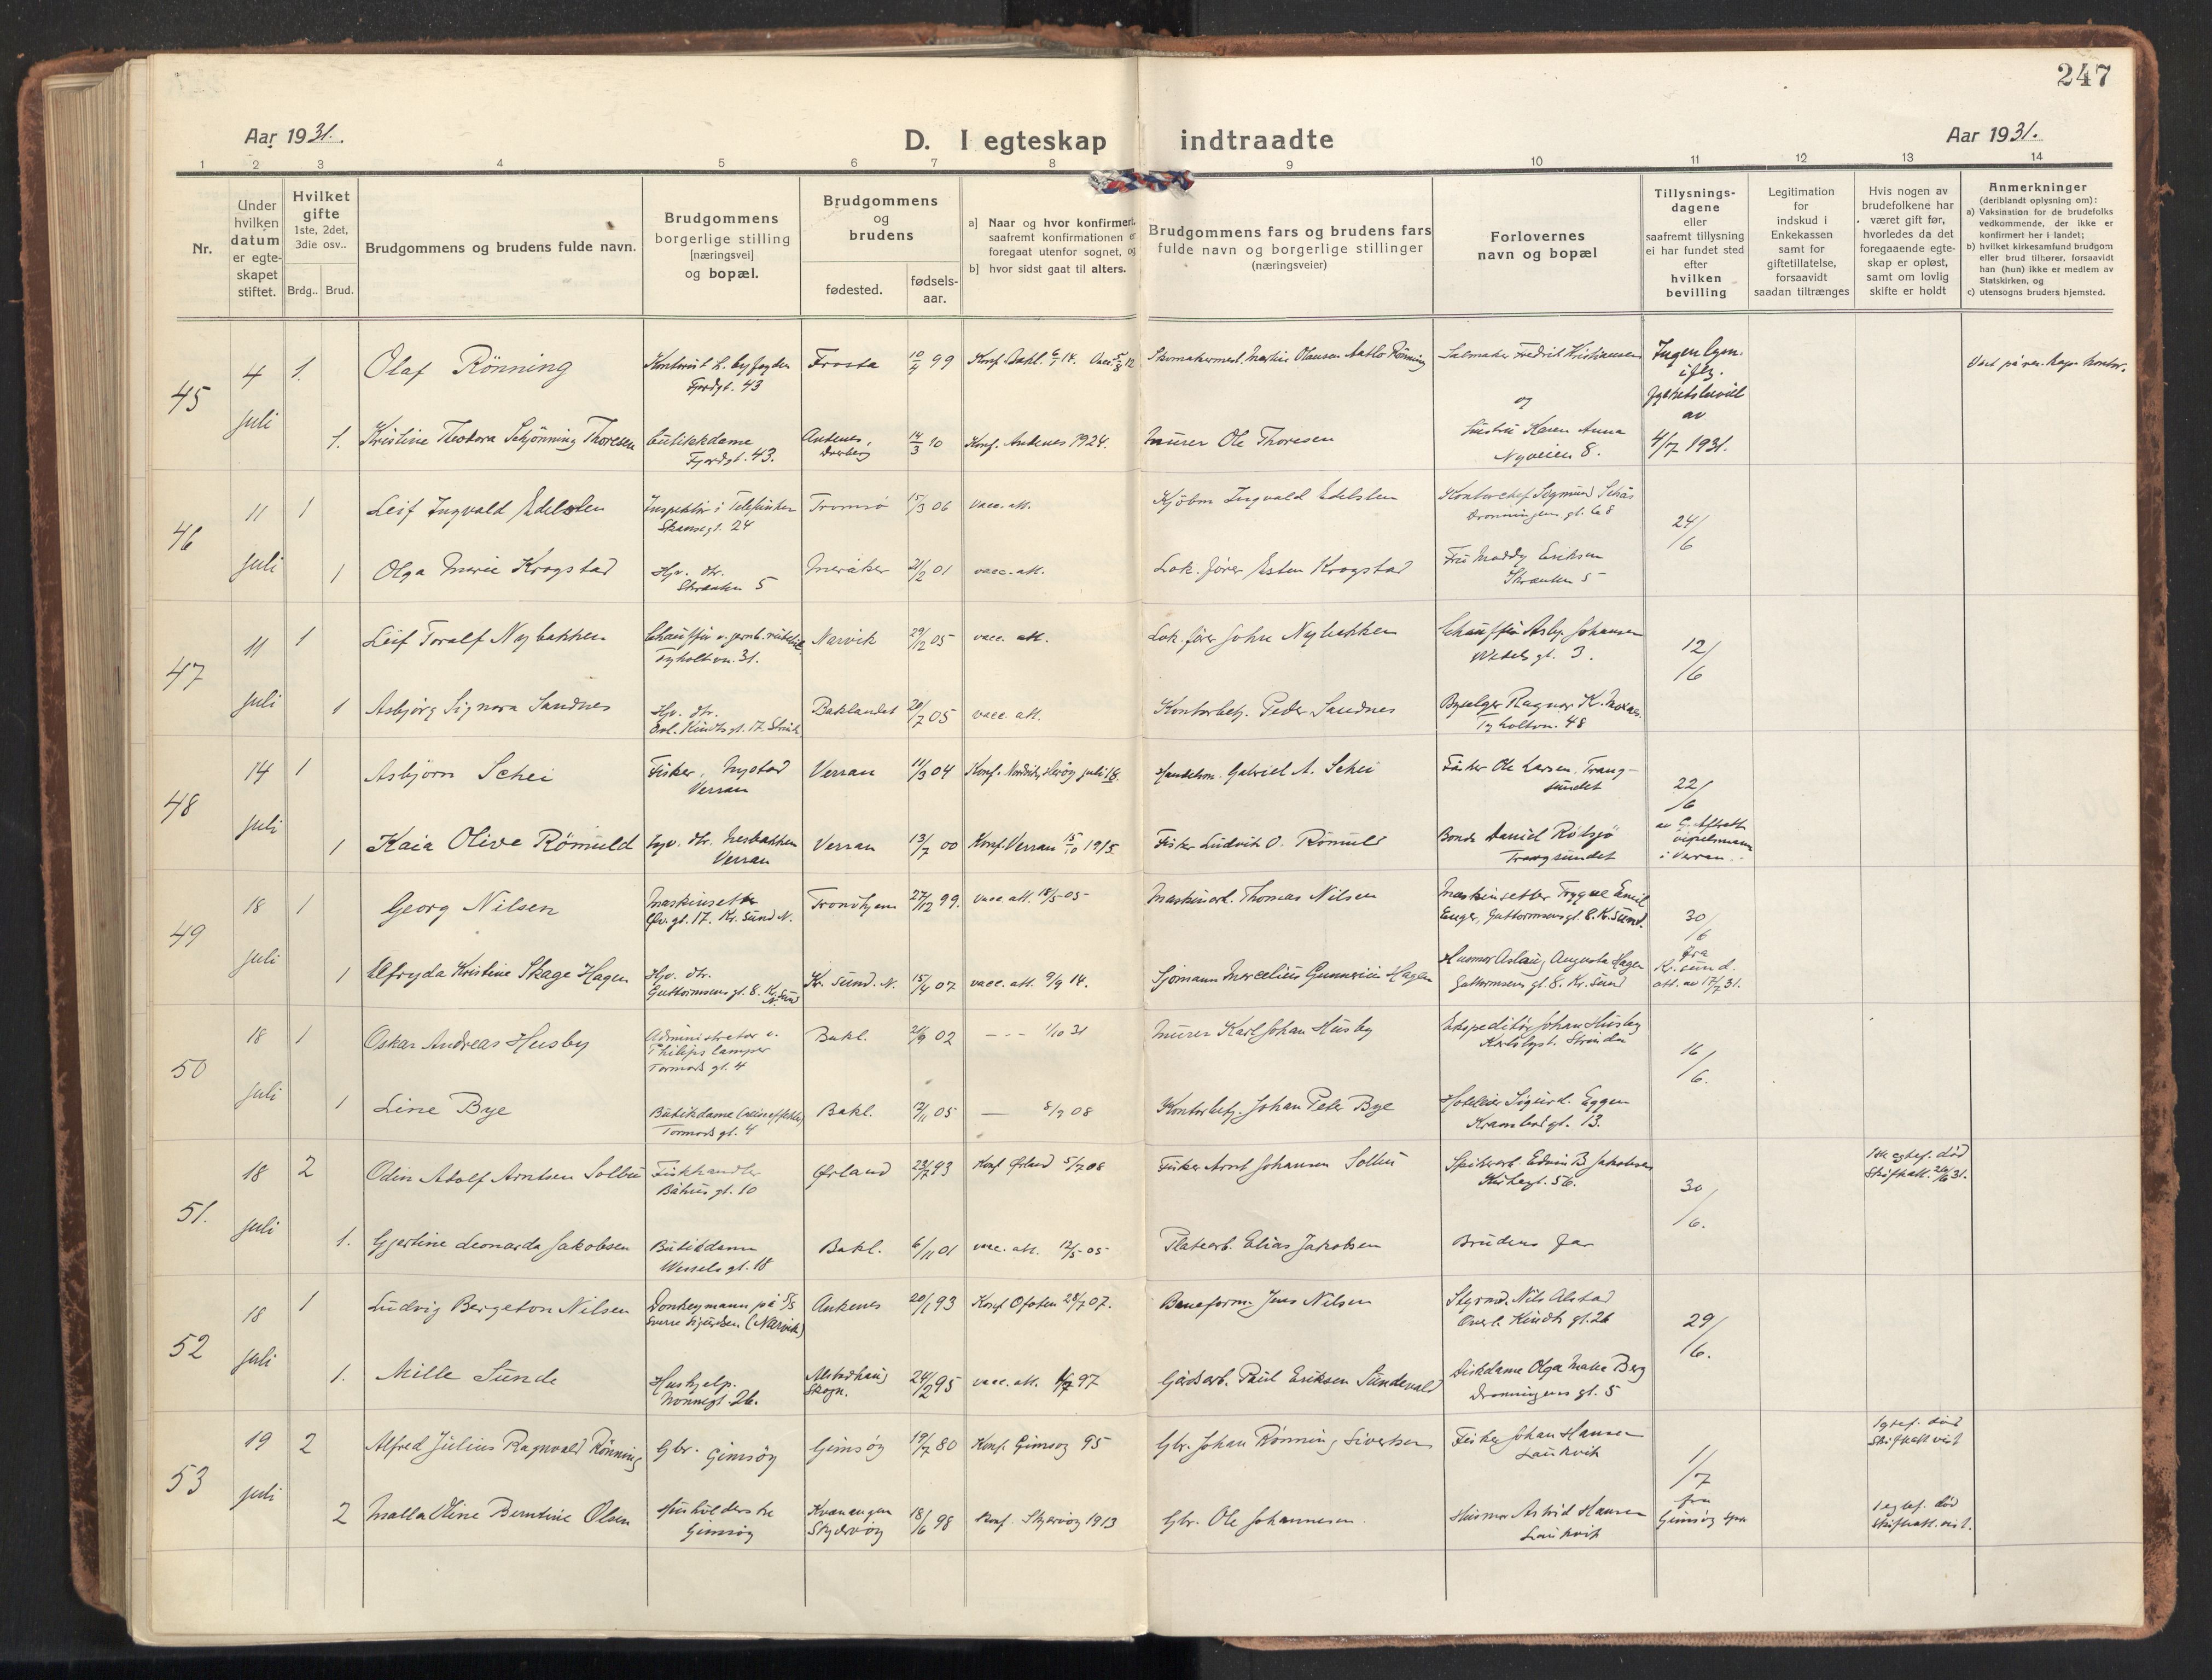 247
Aar 1931.
D. I egteskap indtraadte
Aar 1931.
1 2 3 4 5 6 7 8 9 10 11 12 13 14
Nr.
Under hvilken datum er egteskapet stiftet.
Hvilket gifte 1ste, 2det, 3die osv..
Brdg.. Brud.
Brudgommens og brudens fulde navn.
Brudgommens borgerlige stilling [næringsvei] og bopæl.
Brudgommens og brudens
fødested.
fødsels-aar.
a] Naar og hvor konfirmert, saafremt konfirmationen er foregaat utenfor sognet, og
b] hvor sidst gaat til alters.
Brudgommens fars og brudens fars fulde navn og borgerlige stillinger (næringsveier)
Forlovernes navn og bopæl
Tillysnings-dagene eller saafremt tillysning ei har fundet sted efter hvilken bevilling
Legitimation for indskud i Enkekassen samt for giftetillatelse, forsaavidt saadan tiltrænges
Hvis nogen av brudefolkene har været gift før, hvorledes da det foregaaende egte-skap er opløst, samt om lovlig skifte er holdt
Anmerkninger (deriblandt oplysning om):
a) Vaksination for de brudefolks vedkommende, der ikke er konfirmert her i landet;
b) hvilket kirkesamfund brudgom eller brud tilhører, forsaavidt han (hun) ikke er medlem av Statskirken, og
c) utensogns bruders hjemsted.
45
4 juli
1.
Olaf Rönning
Fjordgt. 43
Frosta
99
Ingen lysn.
av
4/7 1931.
1.
Kristine Theodora Schjönning Thoresen
Butikkdame
Fjordgt. 43.
Andenes,
14/3 10
Konf. Andenes 1924.
Murer Ole Thoresen
og
Karen Anna
Nyveien 8.
46
11 juli
1
Leif Ingvald Edelsten
Skansegt. 24
Tromsø
15/3 06
vacc. att.
Kjöbm Ingvald Edelsten
Dronningens gt. 68
24/6
1
Olga Marie Krogstad
Hjv. dtr.
Skranken 5
Meråker
21/2 01
vacc. att.
Lok. fører Esten Krogstad
Fru Moddy Eriksen
Skranken 5
47
11 juli
1
Leif Toralf Nybakken
Tyholtvn. 31.
Narvik
29/12 05
vacc. att.
Lok. fører John Nybakken
Chauffør Asbj. Johansen
Wedels gt. 3.
12/6
1
Asbjørg Signora Sandnes
Hjv. dtr.
Baklandet
20/7 05
vacc. att.
Kontorbetj. Peder Sandnes
Tyholtvn. 48
48
14 juli
1
Asbjørn Schei
Fisker, Nystad
Verran
Verran
11/3 04
Gabriel A. Schei
Fisker Ole Larsen, Trang-
sundet
22/6
1
Kaia Olive Römuld
Hjv. dtr. Nesbakken
Verran
Verran
13/7 00
Konf. Verran 15/10 1915.
Fisker Ludvik O. Römuld
Bonde Daniel Rödsjö
Trangsundet
i Verran.
49
18 juli
1
Georg Nilsen
Maskinsetter
gt. 17. Kr. sund N.
Trondhjem
27/12 99.
vacc. att. 18/5-05
Thomas Nilsen
Maskinsetter Trygve Emil
Enger, Guttormsens gt. 8. Kr. sund.
30/6
fra
Kr. sund.
att. av 17/7 31.
1
Alfryda Kristine Skage Hagen
Hjv. dtr.
Guttormsens gt. 8. Kr. sund N.
Kr. sund. N.
15/4 07
vacc. att. 9/9 14.
Sjömann Marcelius Gunnerius Hagen
Husmor Aslaug Augusta Hagen
Guttormsens gt. 8. Kr. sund
50
18 juli
1
Oskar Andreas Husby
Administrator v.
Philips lamper
Tormods gt. 4
Bakl.
21/9 02
--- 1/10 31
Murer Karl Johan Husby
Ekspeditör Johan Husby
Strinda
16/6.
1
Line Bye
Butikdame
Tormods gt. 4
Bakl.
12/11 05
— 8/9 08
Kontorbetj. Johan Peter Bye
Hotelleier Sigurd. Eggen
13.
51.
18 juli
2
Odin Adolf Arntsen Solbu
Fiskhandler
Bakus gt. 10
Ørland
23/7 93
Konf Ørland 5/7 08
Fisker Arnt Johansen Solbu
Edvin B. Jakobsen
Kirkegt. 56.
30/6.
1ste egtef. död
Skifteatt. 31.
1.
Gjertine Leonarda Jakobsen
Butikdame
Wessels gt. 18
Bakl.
6/11 01
vacc. att. 12/5-05
Platearb. Elias Jakobsen
Brudens far
52
18 juli
1
Ludvig Bergeton Nilsen
Donkeymann på S/S
Sverre Sigurdsen (Narvik)
Ankenes
20/1 93
Konf Ofoten 28/7 07.
Jens Nilsen
Styrmd. Nils Alstad
29/6.
1.
Mille Sunde
Hushjelp.
Nonnegt. 26.
Alstadhaug
Skogn.
24/2 95
vacc. att. 97
Gårdsarb. Paul Eriksen Sundevald
Diskdame Olga Marie Berg
Dronningens gt. 5
53
19 juli
2
Alfred Julius Ragnvald Rönning
Gbr. Gimsöy
Gimsöy
19/7 80
Konf. Gimsoy 95
Gbr. Johan Rönning Sivertsen
Fisker Johan Hansen
Laukvik
1/7
fra
Gimsöy
Egtef. död
Skifteatt vist
2
Malla Oline Berntine Olsen
Husholderske
Gimsöy
Kvænangen
Skjervöy
18/6 98
Konf. Skjervöy 1913
Gbr. Ole Johannesen.
Husmor Astrid Hansen
Laukvik
1 egtef. död
Skifteatt. vist.